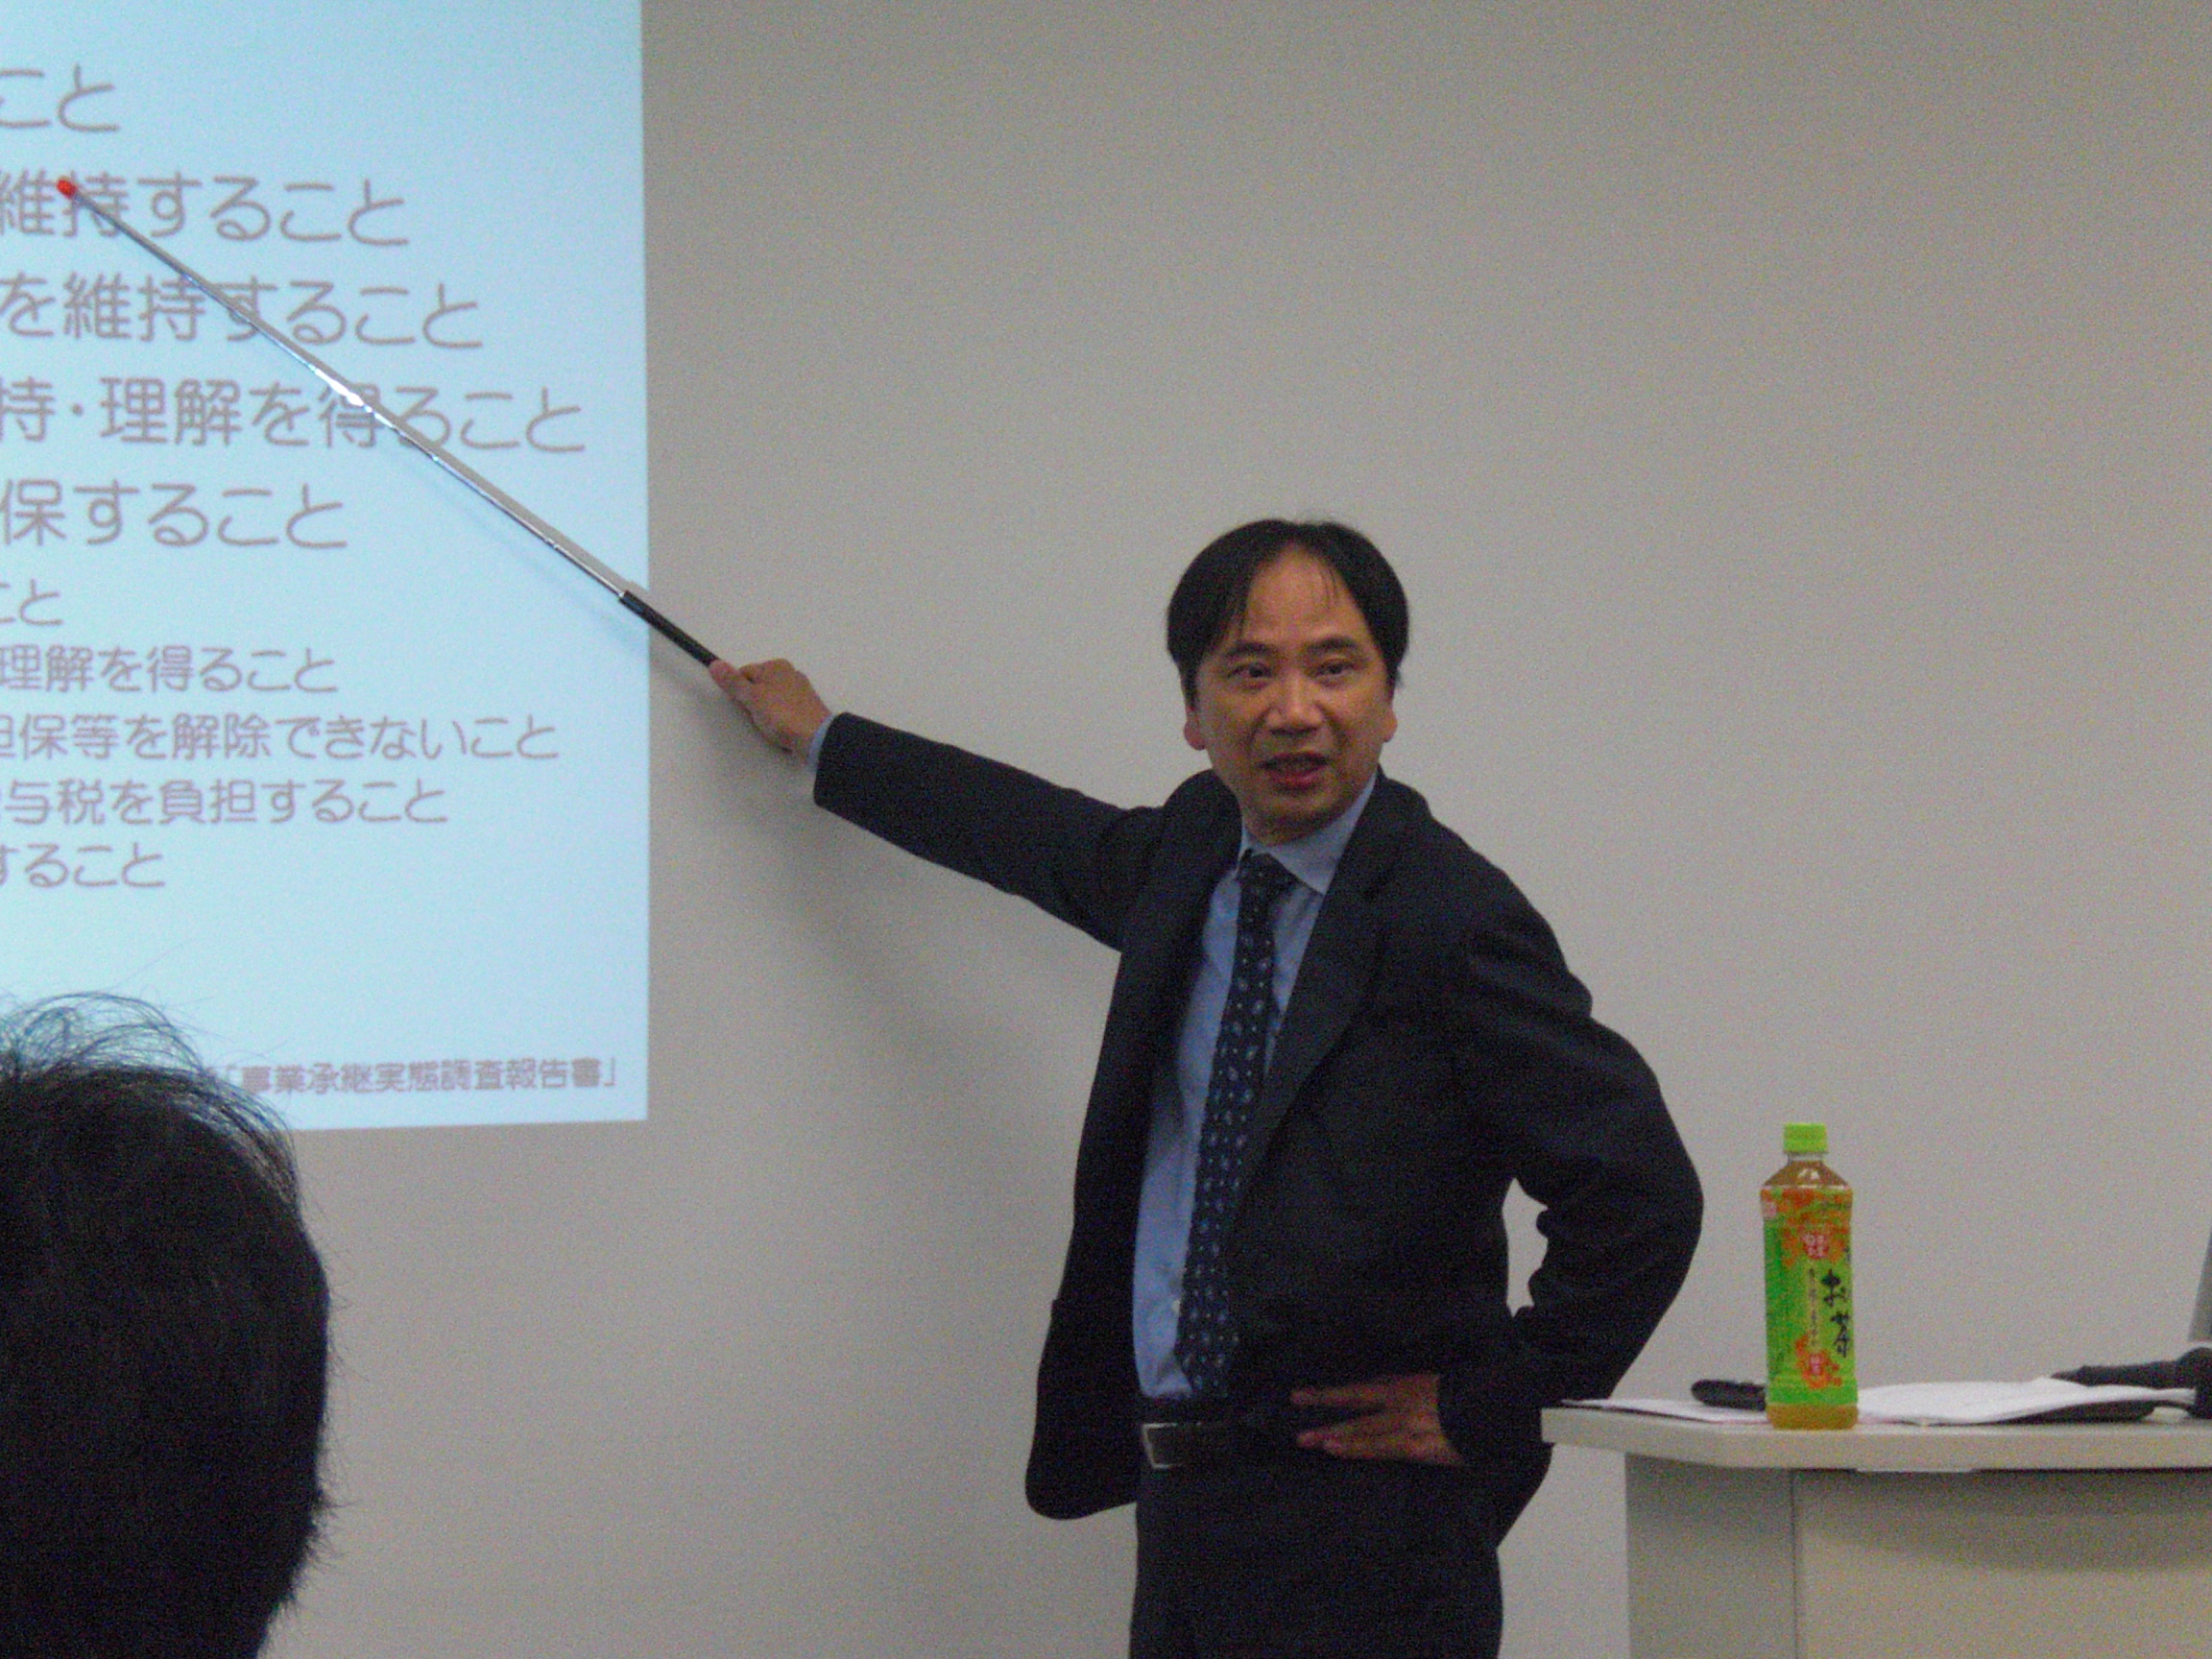 こと
維持すること
を維持すること
持・理解を得ること
保すること
こと
理解を得ること
担保等を解除できないこと
与税を負担すること
すること
「事業承継実態調査報告書」
お茶